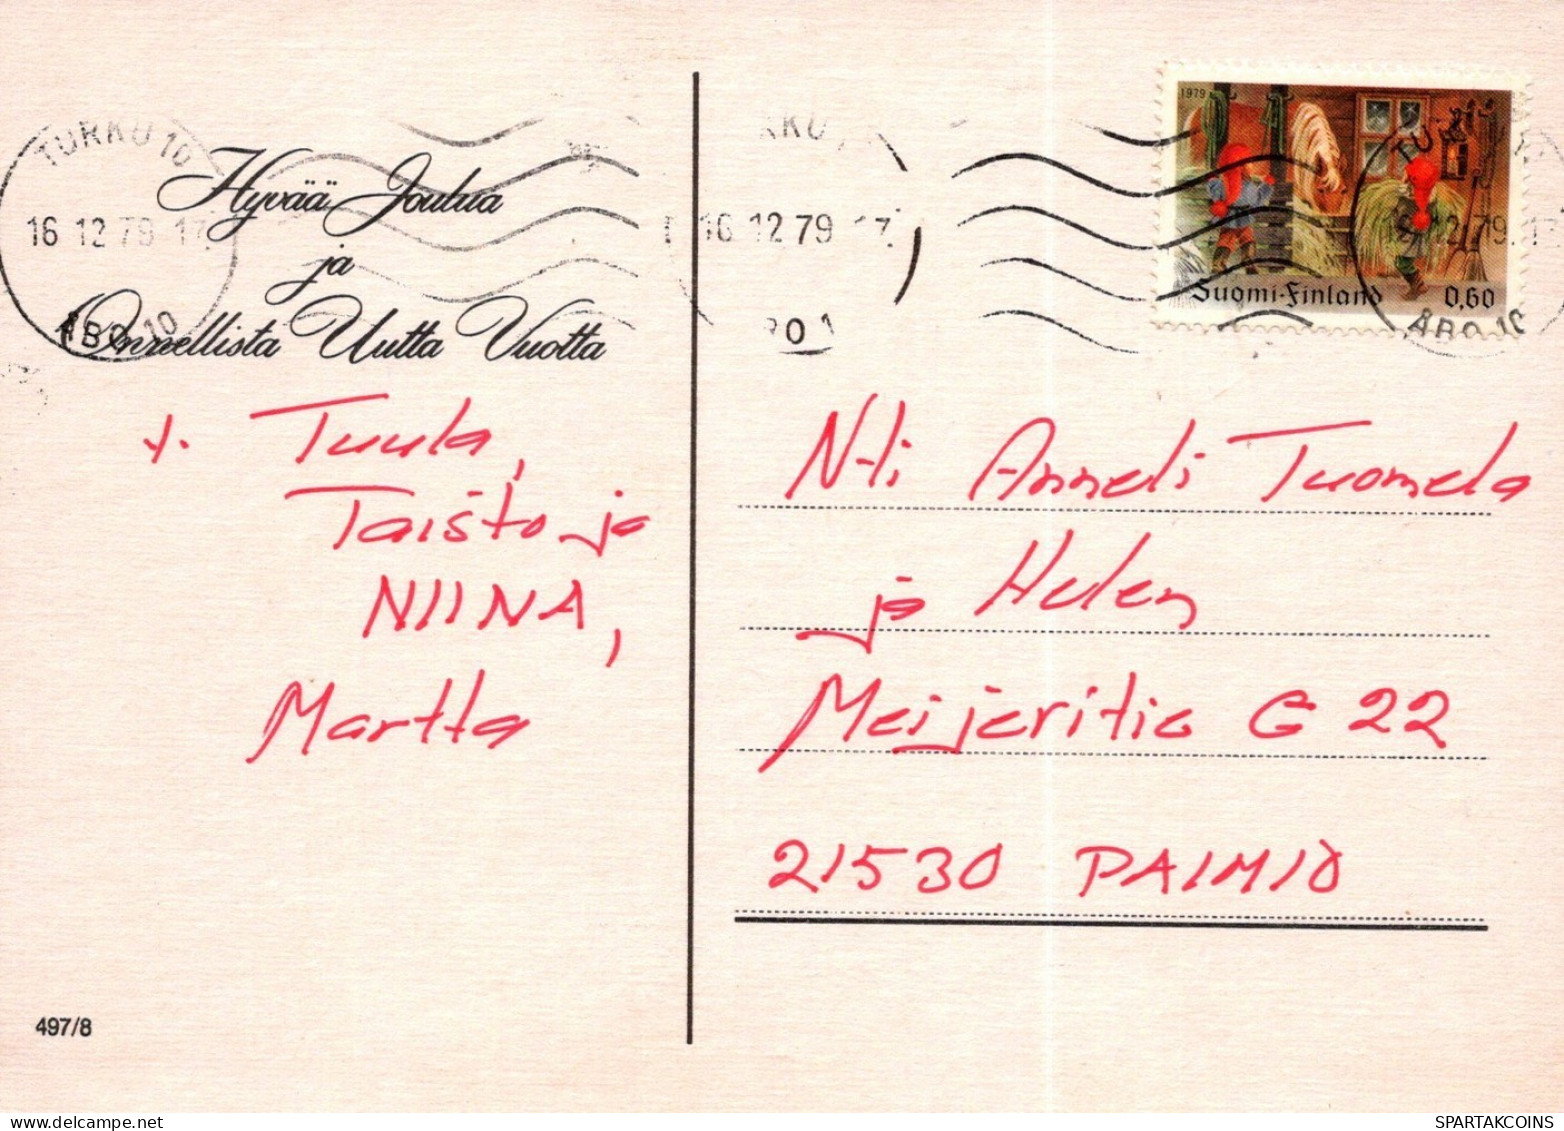 TURKU 10
16.12.79.-17.
ÅBO 10
Hyvää Joulua
ja
Onnellista Uutta Vuotta
t. Tuula,
Taisto ja
NIINA,
Martta
497/8
16.12.79.-17.
1979
Suomi-Finland 0,60
ÅBO 10
N-ti Anneli Tuomela
ja Helen
Meijeritie G 22
21530 PAIMIO
delcampe.net
SPARTAKCOINS